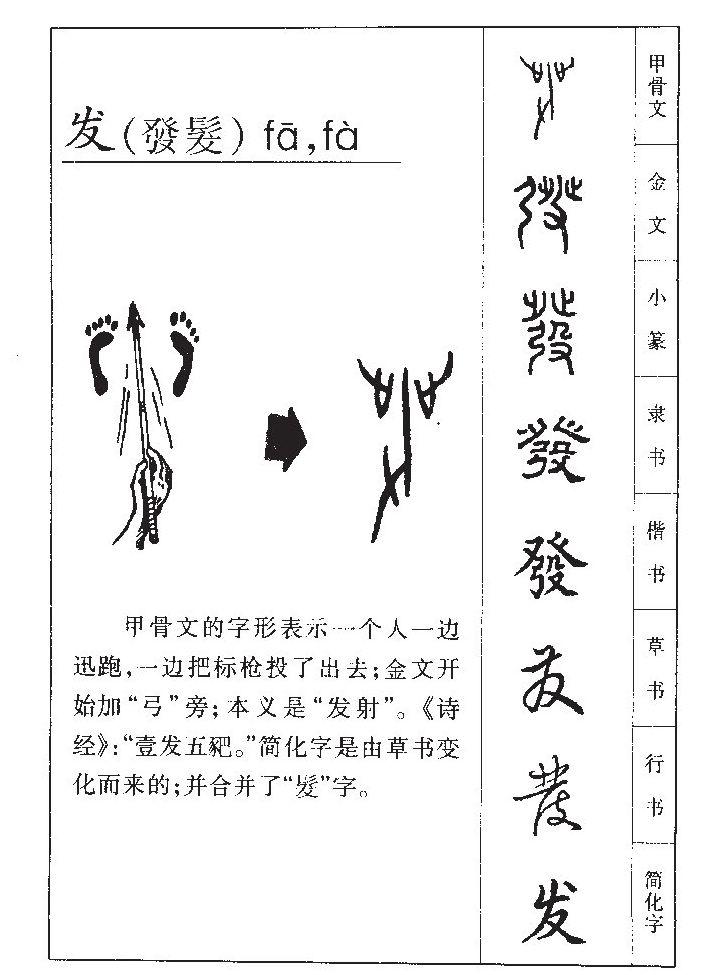 发(發髮) fā,fà
甲骨文的字形表示一个人一边
迅跑,一边把标枪投了出去;金文开
始加“弓”旁;本义是“发射”。《诗
经》:“壹发五豝。”简化字是由草书变
化而来的;并合并了“髮”字。
甲骨文
金文
發
小篆
發
隶书
發
楷书
發
草书
行书
发
简化字